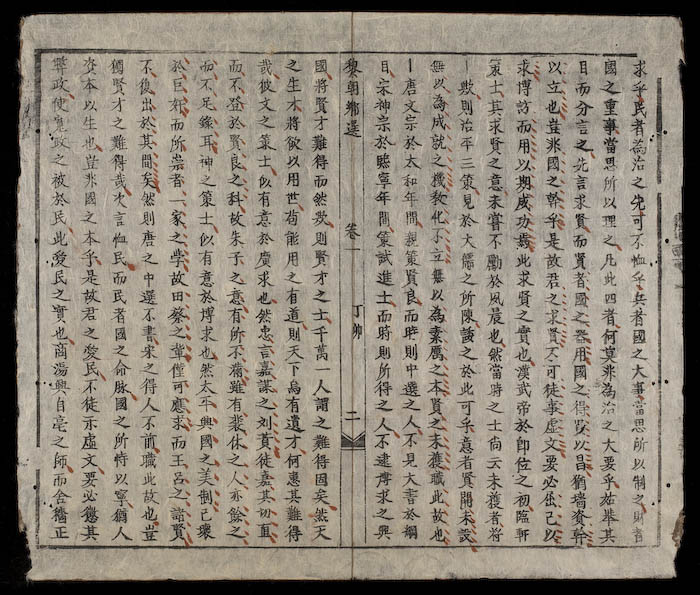 求乎民者為治之先可不恤乎兵者國之大事當思所以制之財者
國之重事當思所以理之凡此四者何莫非為治之大要乎姑舉其
目而分言之先言求賢而賢者國之器用國之得賢以昌猶墻資幹
以立也豈非國之幹乎是故君之求賢不可徒事虛文要必虛己以
求博訪而用以期成功焉此求賢之實也漢武帝於即位之初臨軒
策士其求賢之意未嘗不勵於夙晨也然當時之士尚云未獲者將
一數則治平三策見於大儒之所陳議之於此可乎意者賢關未設
無以為成就之機教化不立無以為素厲之本賢之未獲職此故也
一唐文宗於太和年間親策賢良而時則中選之人不見大書於綱
目宋神宗於熙寧年間策試進士而時則所得之人不逮薄求之興
黎朝鄉選 卷一 丁卯 二
國將賢才難得而然歟則賢之士千萬一人謂之難得固矣然天
之生才將欲以用世苟能用之有道則天下烏有遺才何患其難得
哉彼文之策士似有意於廣求也然忠言嘉謀之刘蕡徒嘉其切直
而不登於賢良之科故朱子之意有所不滿雖有裴休之人亦餘之
而不足錄耳神之策士似有意於博求也然太平興國之美制已壞
於巨奸而所崇者一家之學故田祭之輩僅可應求而王呂之諸賢
不復出於其間矣然則唐之中選不書宋之得人不前職此故也豈
獨賢才之難得哉次言恤民而民者國之命脉國之所恃以寧猶人
資本以生也豈非國之本乎是故君之愛民不徒示虛文要必懲其
弊政使寬政之被於民此愛民之實也商湯興自亳之師而金稽正